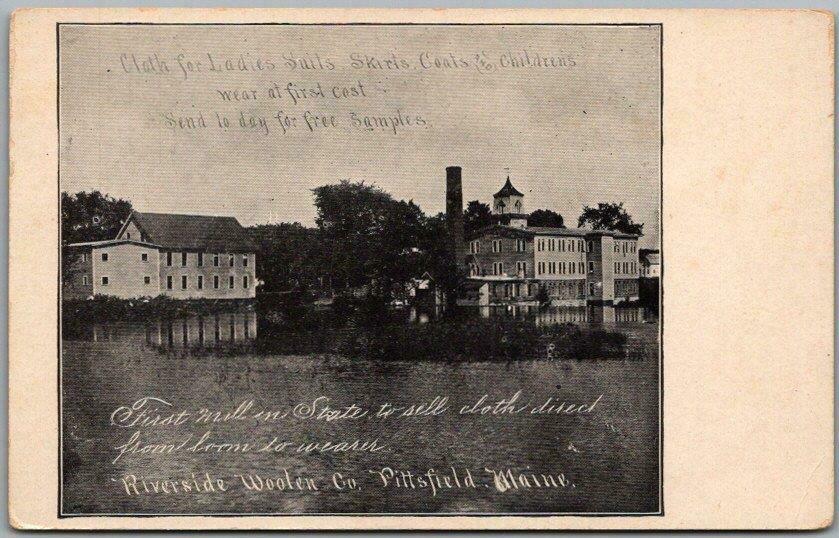 Cloth for Ladies Suits, Skirts, Coats & Childrens
wear at first cost
Send to day for free Samples.
First mill in State to sell cloth direct
from loom to wearer.
Riverside Woolen Co. Pittsfield, Maine.